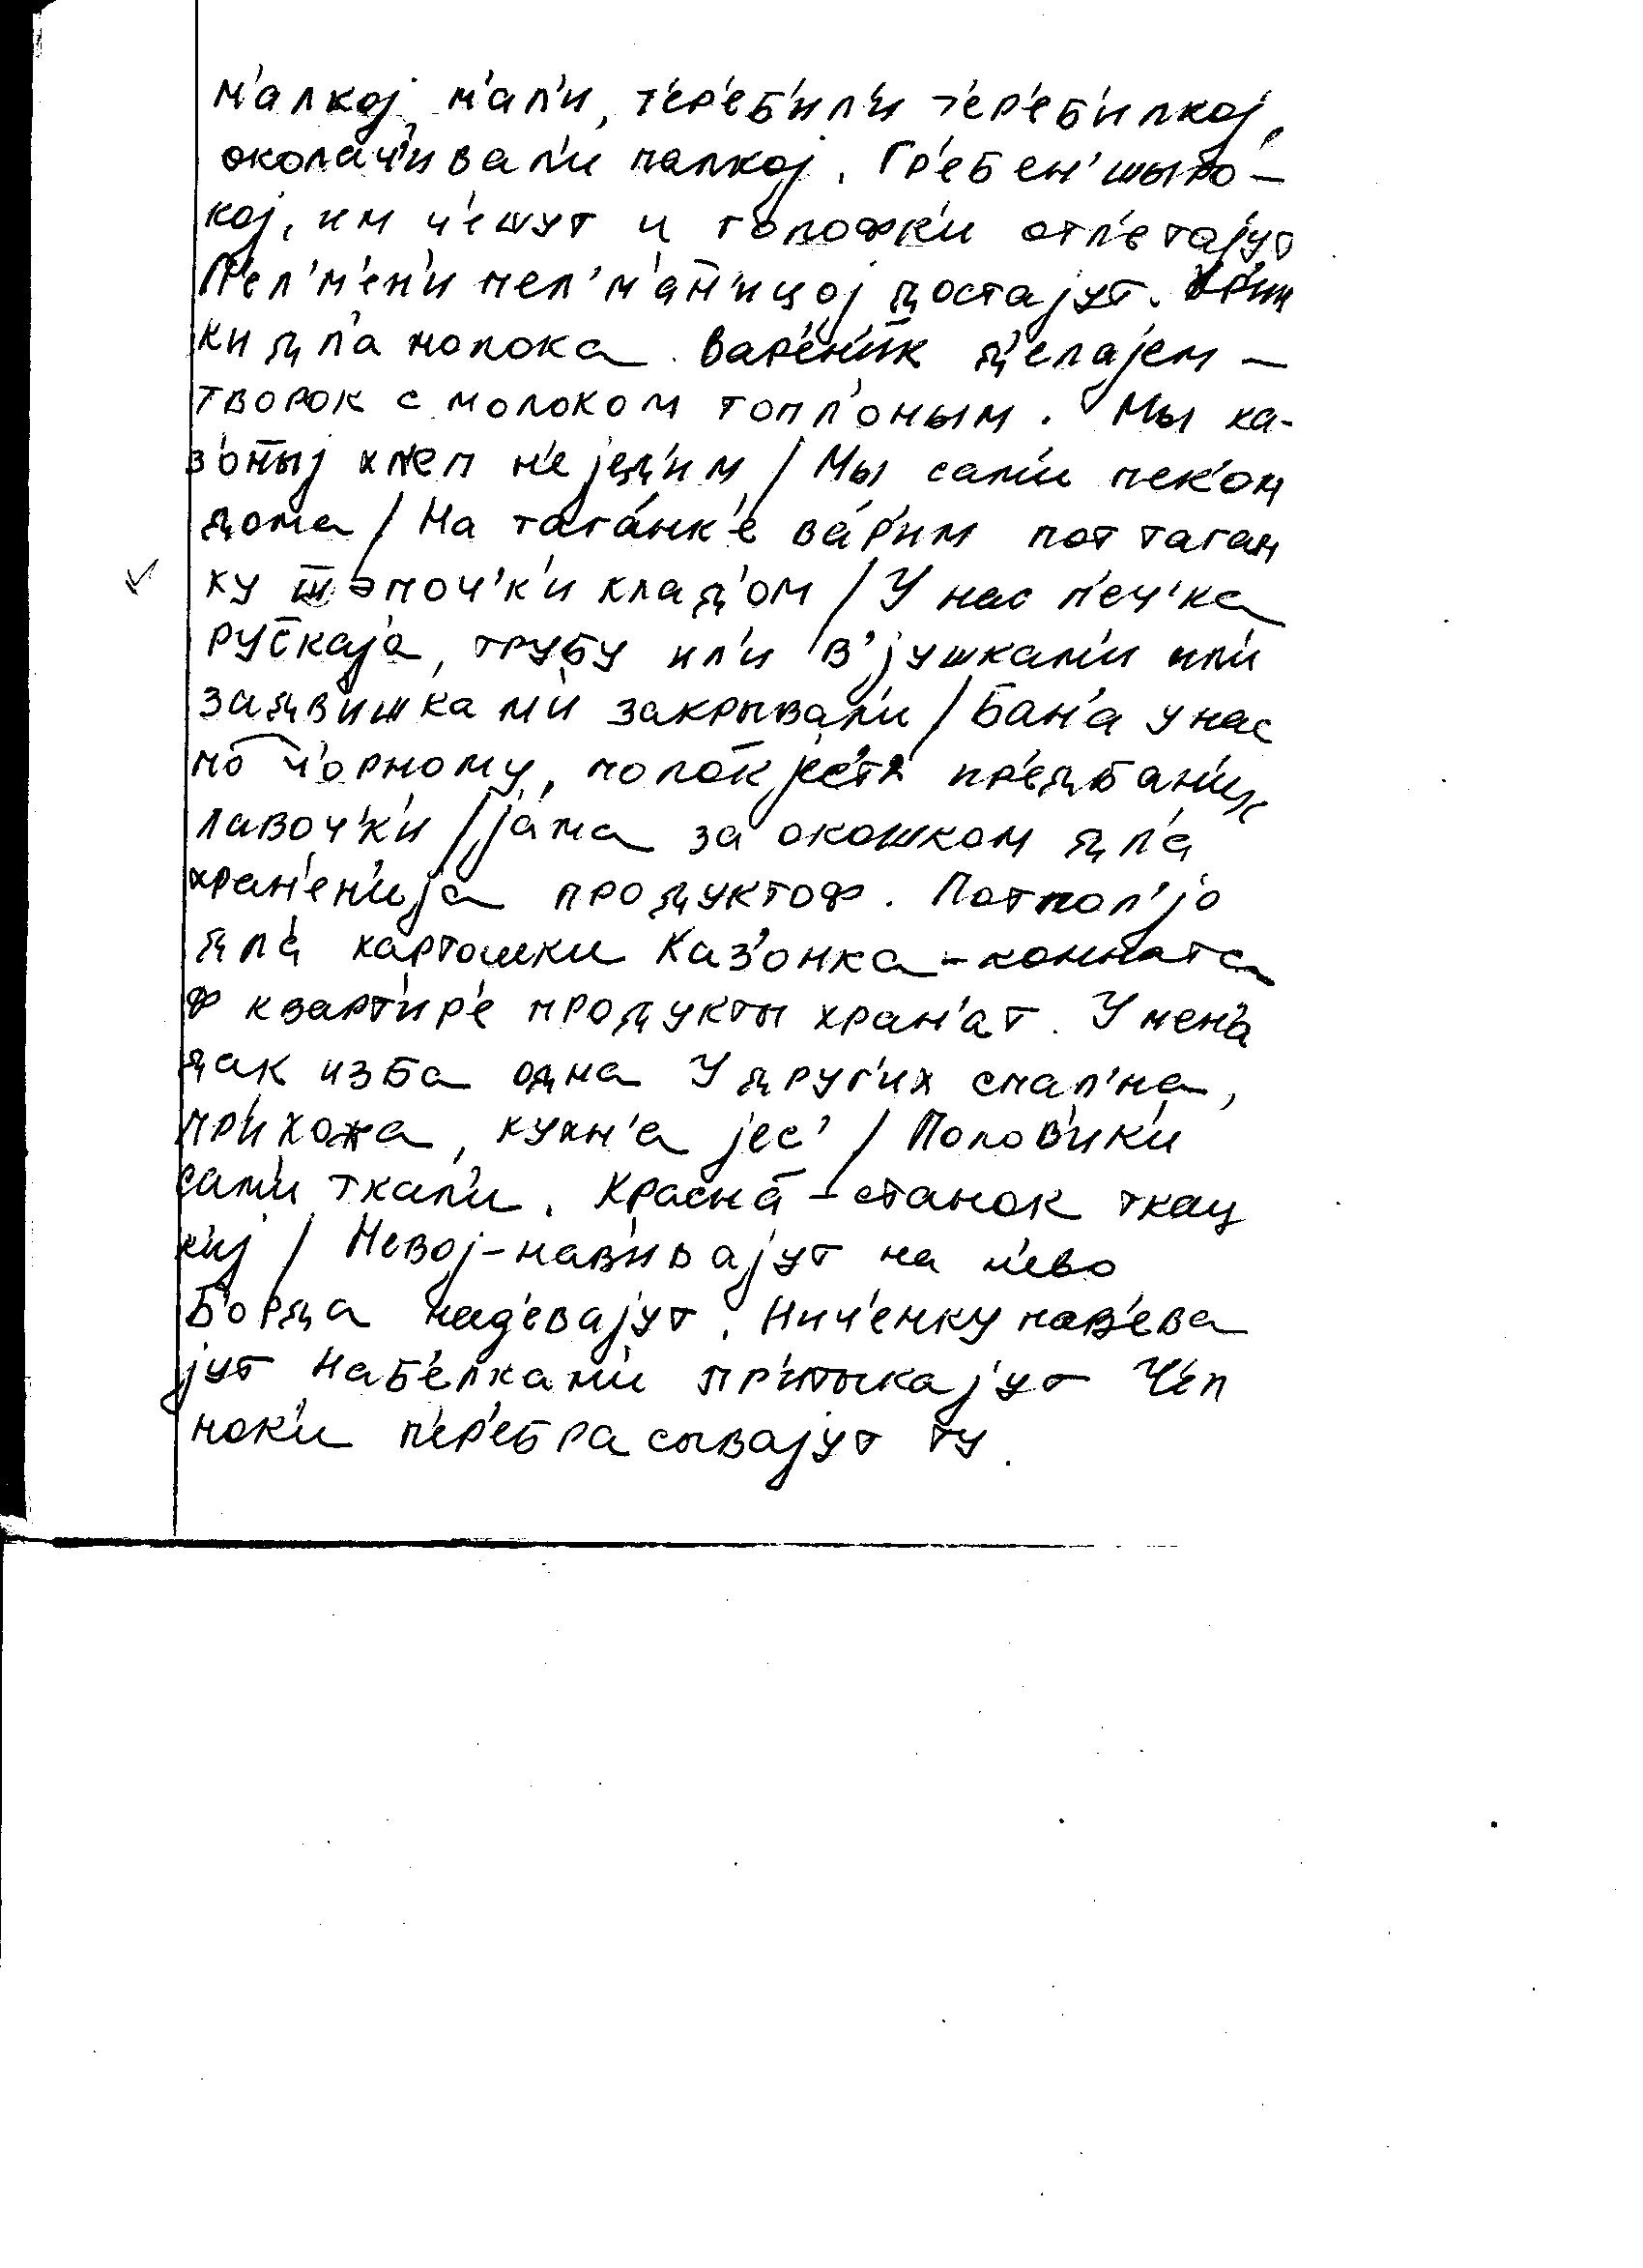 м'алкој м'ал'и, т'ер'еб'ил'и т'ер'еб'илкој,
околач'ивал'и палкој. Гр'ебен' шыро-
кој, им ч'ешут и голофк'и отл'етајут
П'ел'м'ен'и пел'м'ан̄'ицој достајут. Крин
ки дл'а молока. Вар'ен̄'ик д'елајем –
творок с молоком топл'оным. Мы ка-
з'он̄ыј хл'еп н'е јед'им / Мы сам'и пек'ом
дома / На таганк'е вар'им пот таган
ку ш̄эпоч'к'и клад'ом / У нас п'еч'ка
рус̄каја, трубу ил'и в'јушкам'и ил'и
задв'ишкам'и закрывал'и / Бан'а у нас
по ч'орному, полок јес'т' пр'едбан'ик
лавоч'к'и / јама за окошком дл'а
хран'ен'ија продуктоф. Потпол'јо
дл'а картошки Каз'онка – комната
ф кварт'ир'е продукты хран'ат. У мен'а
дак изба одна У друг'их спал'на,
пр'ихожа, кухн'а јес' / Полов'ик'и
сам'и ткал'и. Красна – станок ткац
к'иј / Невој – нав'ивајут на н'ево
Б'орда над'евајут. Нич'енку над'ева
јут Наб'елкам'и пр'итыкајут Ч'еп
нок'и п'ер'ебрасывајут ту.